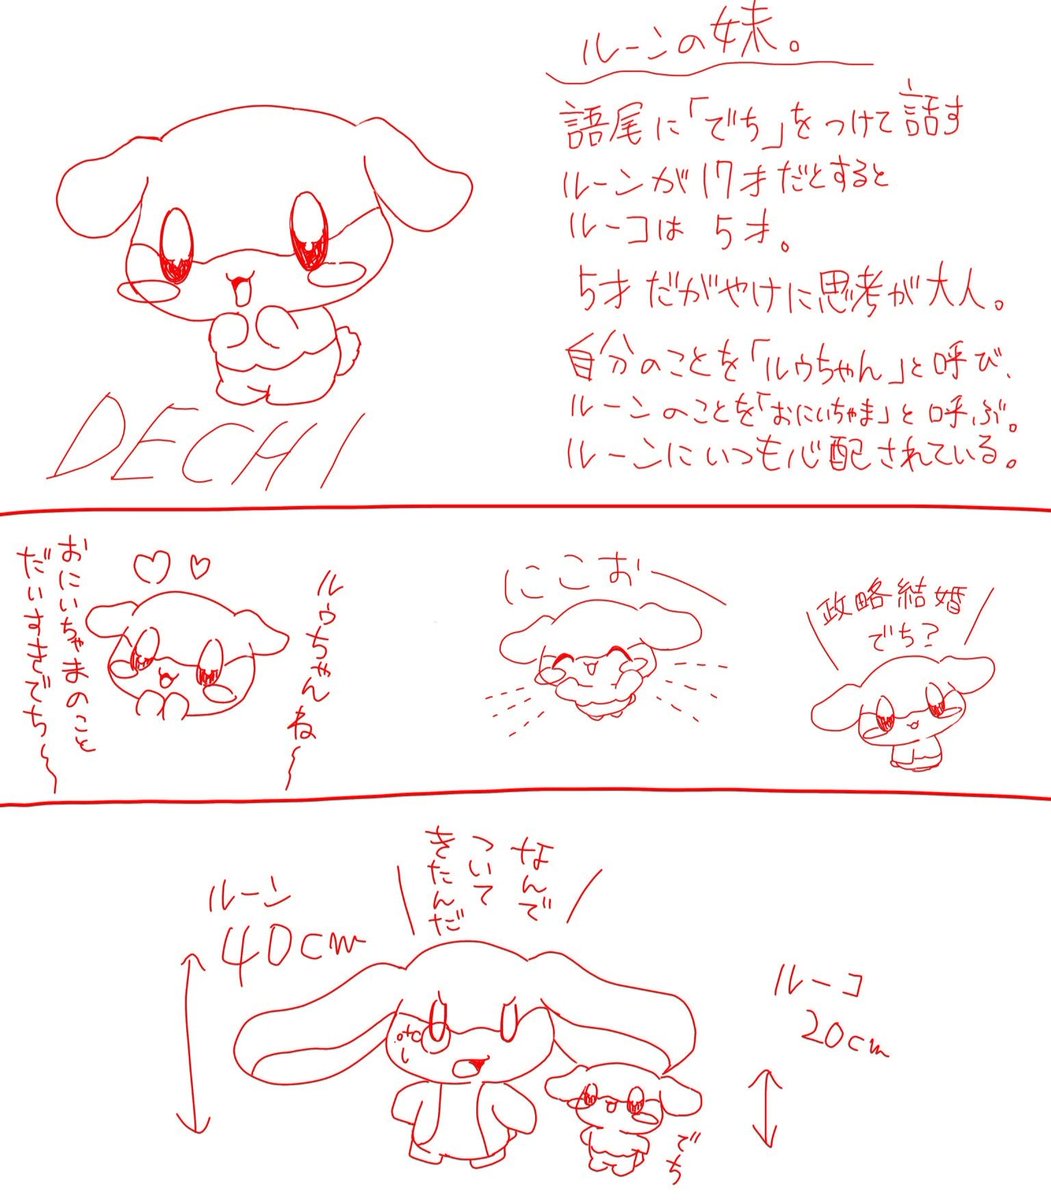 ルーンの妹。
語尾に「でち」をつけて話す
ルーンが17才だとすると
ルーコは 5才。
5才だがやけに思考が大人。
自分のことを「ルゥちゃん」と呼び、
ルーンのことを「おにいちゃま」と呼ぶ。
ルーンにいつも心配されている。
DECHI
ルゥちゃんね〜
おにいちゃまのこと
だいすきでち〜
にこお
政略結婚
でち?
なんで
ついて
きたんだ
ルーン
40cm
ルーコ
20cm
でち